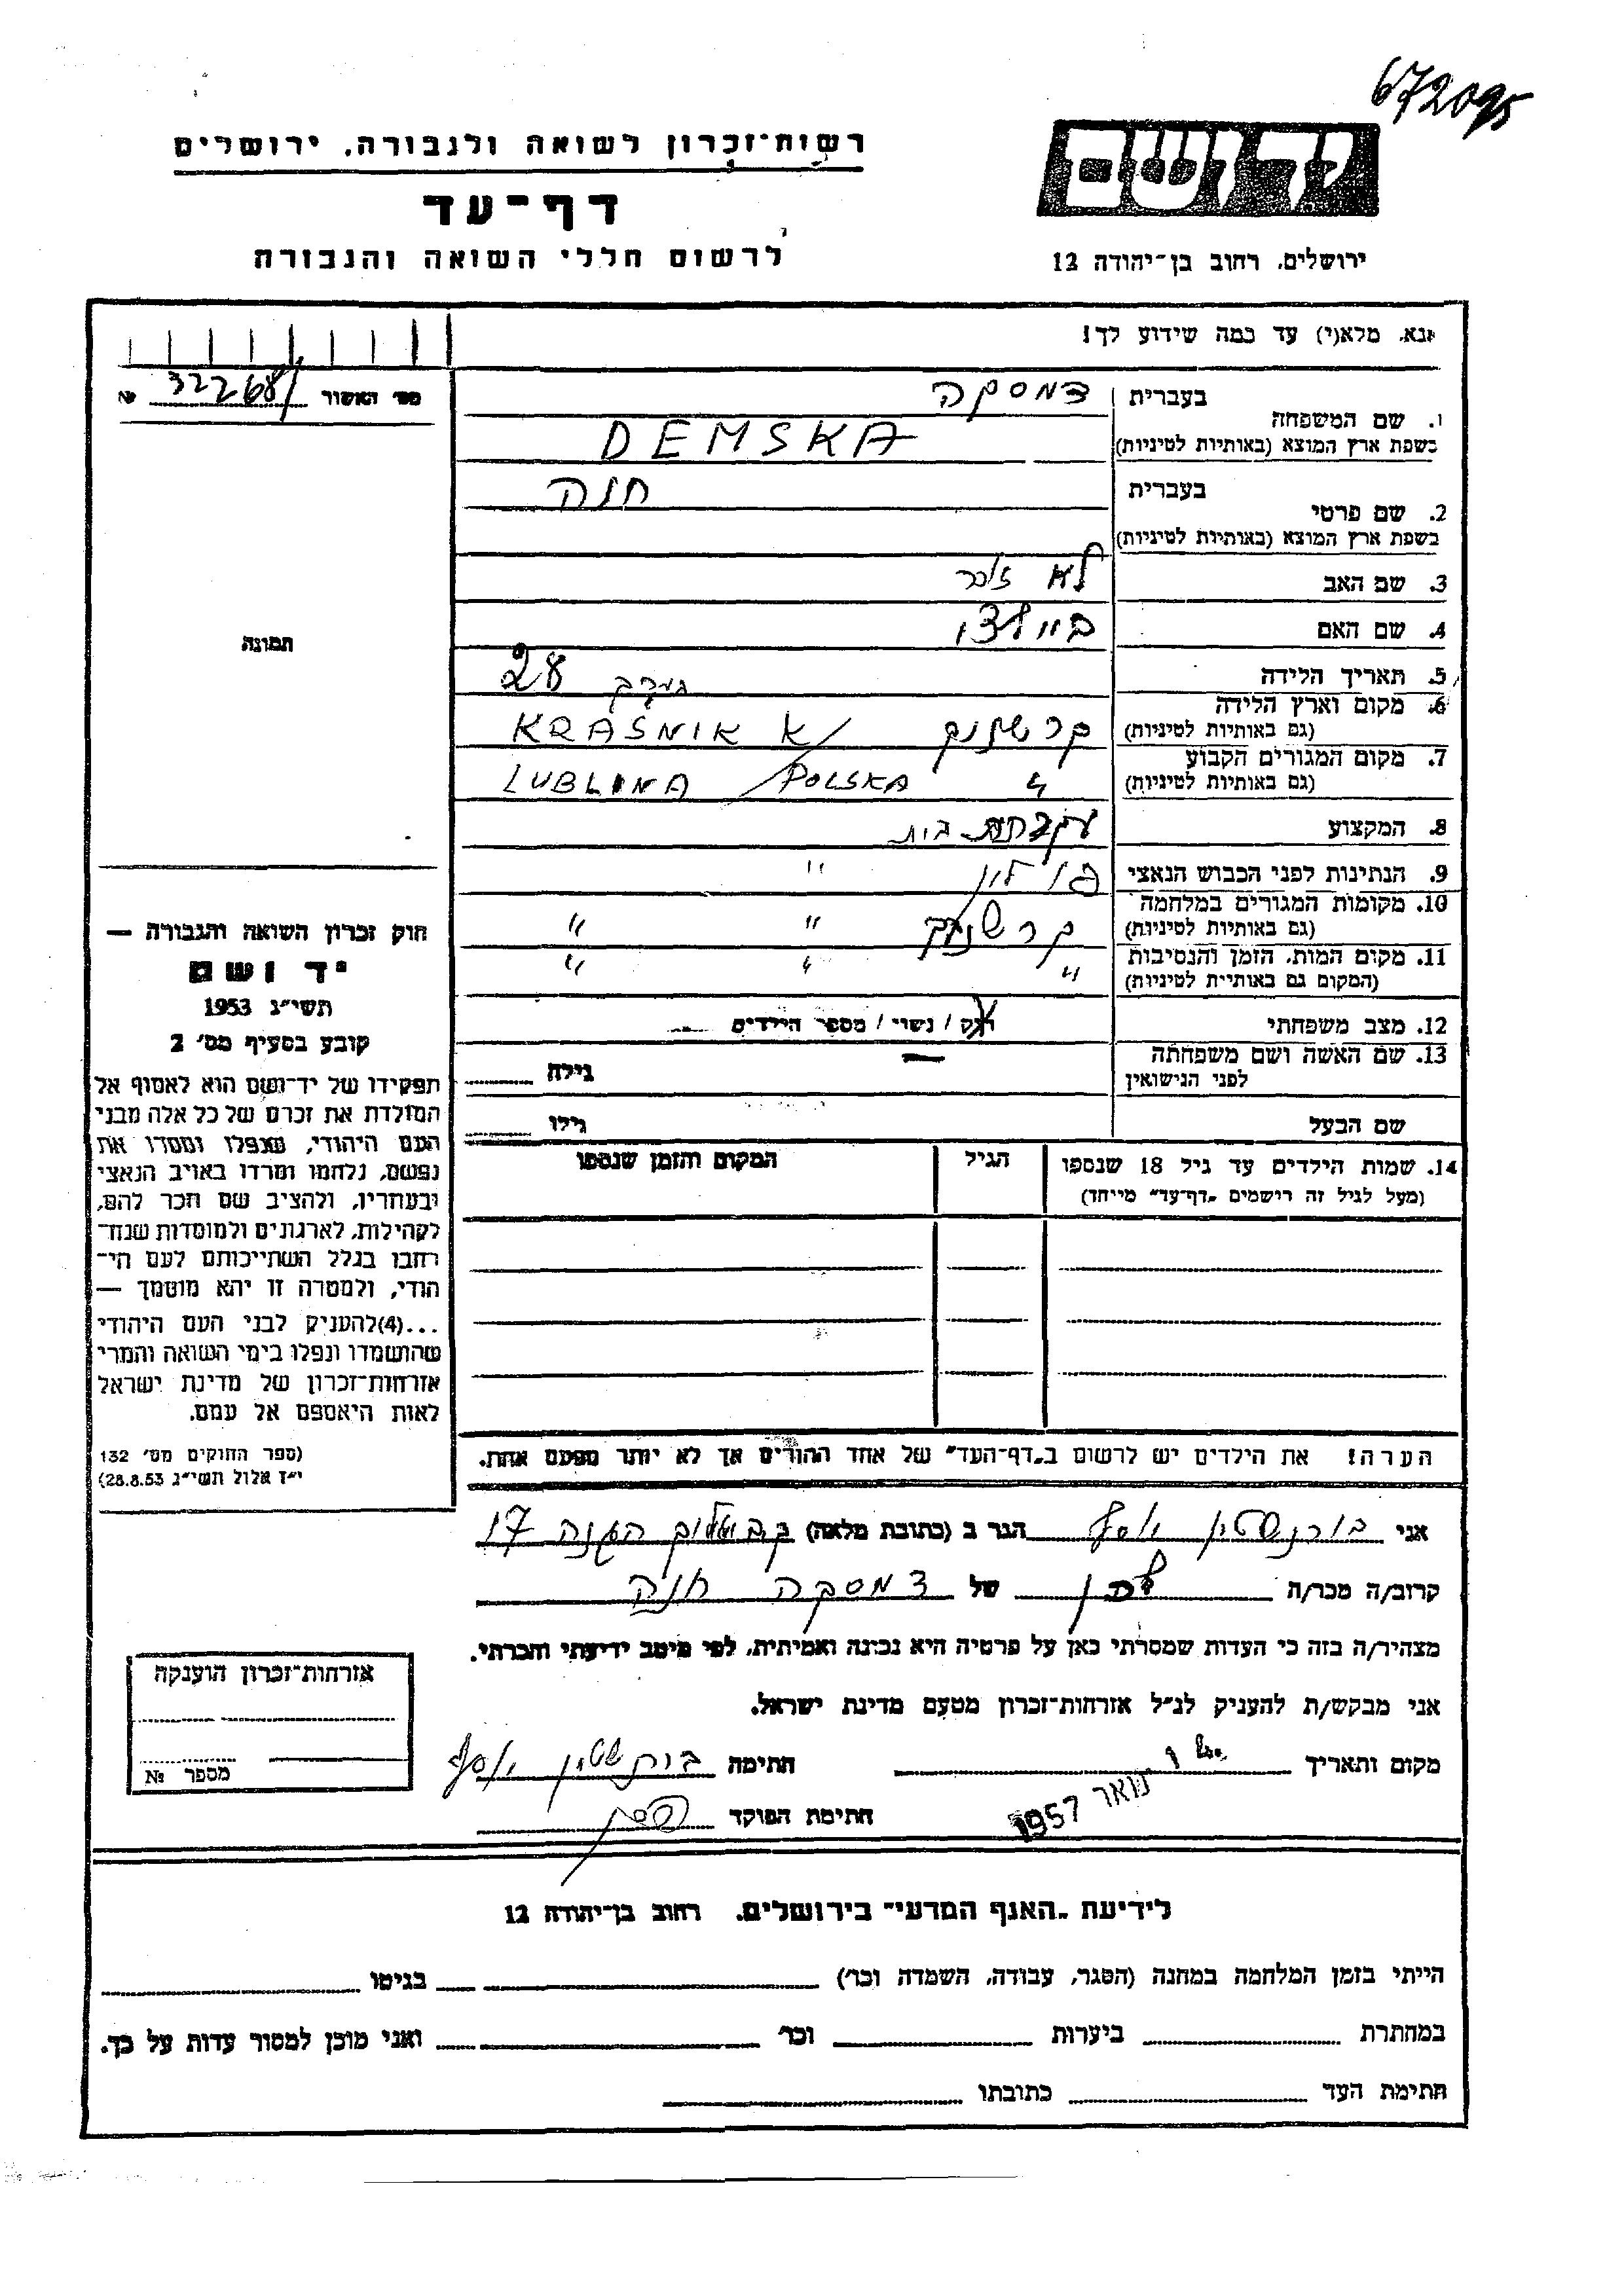 672095
רשות-זכרון לשואה ולגבורה, ירושלים
דף-עד
לרשום חללי השואה והגבורה
יד ושם
ירושלים, רחוב בן-יהודה 12
נא, מלא(י) עד כמה שידוע לך!
מס׳ האשור 322681 №
1. שם המשפחה בעברית דמסקה
בשפת ארץ המוצא (באותיות לטיניות) DEMSKA
2. שם פרטי בעברית חנה
בשפת ארץ המוצא (באותיות לטיניות)
3. שם האב לא זוכר
4. שם האם
5. תאריך הלידה 28
6. מקום וארץ הלידה (גם באותיות לטיניות) קרשניק KRAŚNIK K/
7. מקום המגורים הקבוע (גם באותיות לטיניות) " LUBLINA / POLSKA
8. המקצוע עקרת בית
9. הנתינות לפני הכבוש הנאצי פולין "
10. מקומות המגורים במלחמה (גם באותיות לטיניות) קרשניק " "
11. מקום המות, הזמן והנסיבות (המקום גם באותיות לטיניות) " " "
12. מצב משפחתי רוק / נשוי / מספר הילדים
13. שם האשה ושם משפחתה לפני הנישואין — גילה
שם הבעל גילו
14. שמות הילדים עד גיל 18 שנספו (מעל לגיל זה רישמים „דף-עד״ מייחד) הגיל המקום והזמן שנספו
הערה! את הילדים יש לרשום ב„דף-העד״ של אחד ההורים אך לא יותר מפעם אחת.
תמונה
חוק זכרון השואה והגבורה —
יד ושם
תשי״ג 1953
קובע בסעיף מס׳ 2
תפקידו של יד-ושם הוא לאסוף אל
המולדת את זכרם של כל אלה מבני
העם היהודי, שנפלו ומסרו את
נפשם, נלחמו ומרדו באויב הנאצי
ובעוזריו, ולהציב שם וזכר להם,
לקהילות, לארגונים ולמוסדות שנח-
רחבו בגלל השתייכותם לעם הי-
הודי, ולמטרה זו יהא מוסמך —
...(4)להעניק לבני העם היהודי
שהושמדו ונפלו בימי השואה והמרי
אזרחות-זכרון של מדינת ישראל
לאות היאספם אל עמם.
(ספר החוקים מס׳ 132
י״ז אלול תשי״ג 28.8.53)
אני בורנשטין יוסף הגר ב (כתובת מלאה) ההגנה 17
קרוב/ה מכר/ה שכן של דמסקה חנה
מצהיר/ה בזה כי העדות שמסרתי כאן על פרטיה היא נכונה ואמיתית, לפי מיטב ידיעתי והכרתי.
אני מבקש/ת להעניק לנ״ל אזרחות-זכרון מטעם מדינת ישראל.
מקום ותאריך 1 ינואר 1957 חתימה בורנשטין יוסף
חתימת הפוקד
אזרחות-זכרון הוענקה
מספר №
לידיעת „האגף המדעי״ בירושלים, רחוב בן-יהודה 12
הייתי בזמן המלחמה במחנה (הסגר, עבודה, השמדה וכו׳) בגיטו
במחתרת ביערות וכו׳ ואני מוכן למסור עדות על כך.
חתימת העד כתובתו